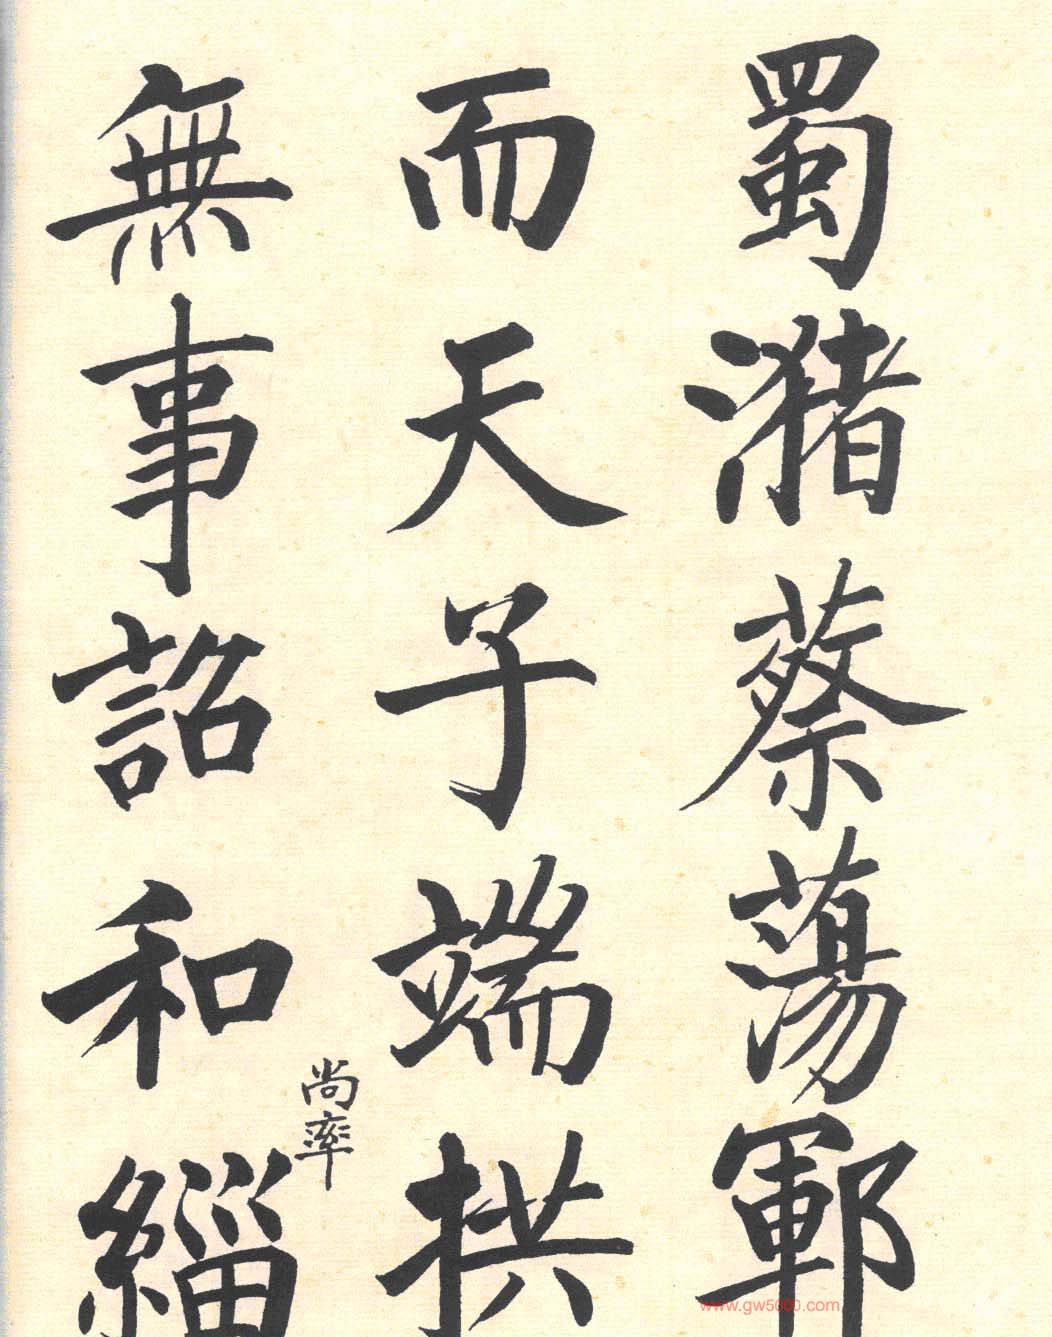 蜀瀦蔡蕩鄆
而天子端拱
無事詔和緇
尚率
www.gw5000.com